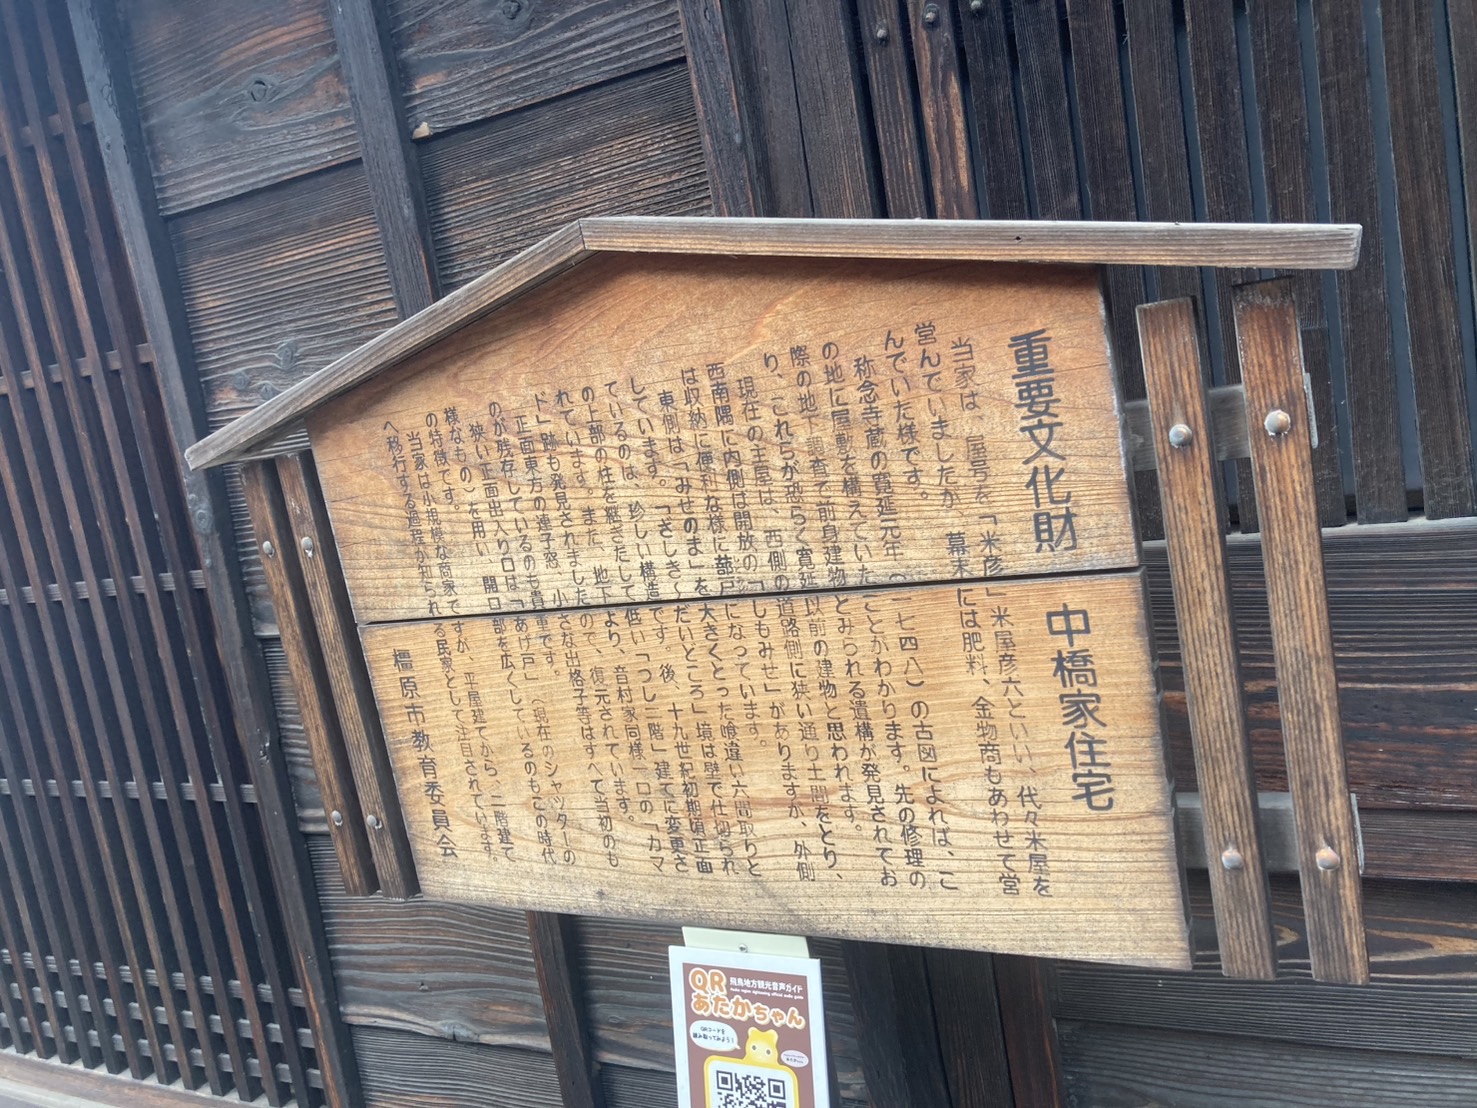 重要文化財　中橋家住宅
当家は、屋号を「米彦」米屋彦六といい、代々米屋を
営んでいましたが、幕末には肥料、金物商もあわせて営
んでいた様です。
称念寺蔵の寛延元年（一七四八）の古図によれば、こ
の地に屋敷を構えていたことがわかります。先の修理の
際の地下調査で前身建物とみられる遺構が発見されてお
り、これらが恐らく寛延以前の建物と思われます。
現在の主屋は、西側の道路側に狭い通り土間をとり、
西南隅に内側は開放の「しもみせ」がありますが、外側
は収納に便利な様に蔀戸になっています。
東側は「みせのま」を大きくとった喰違い六間取りと
しています。「ざしき～だいところ」境は壁で仕切られ
ているのは、珍しい構造です。後、十九世紀初期頃正面
の上部の柱を継ぎたして低い「つし二階」建てに変更さ
れています。また、地下より、音村家同様一口の「カマ
ド」跡も発見されましたので、復元されています。
正面東方の連子窓、小さな出格子等はすべて当初のも
のが残存しているのも貴重です。
狭い正面出入り口は「あげ戸」（現在のシャッターの
様なもの）を用い、開口部を広くしているのもこの時代
の特徴です。
当家は小規模な商家ですが、平屋建てから、二階建て
へ移行する過程が知られる民家として注目されています。
橿原市教育委員会
QR 飛鳥地方観光音声ガイド
あたかちゃん
QRコードを
読み取ってみよう！